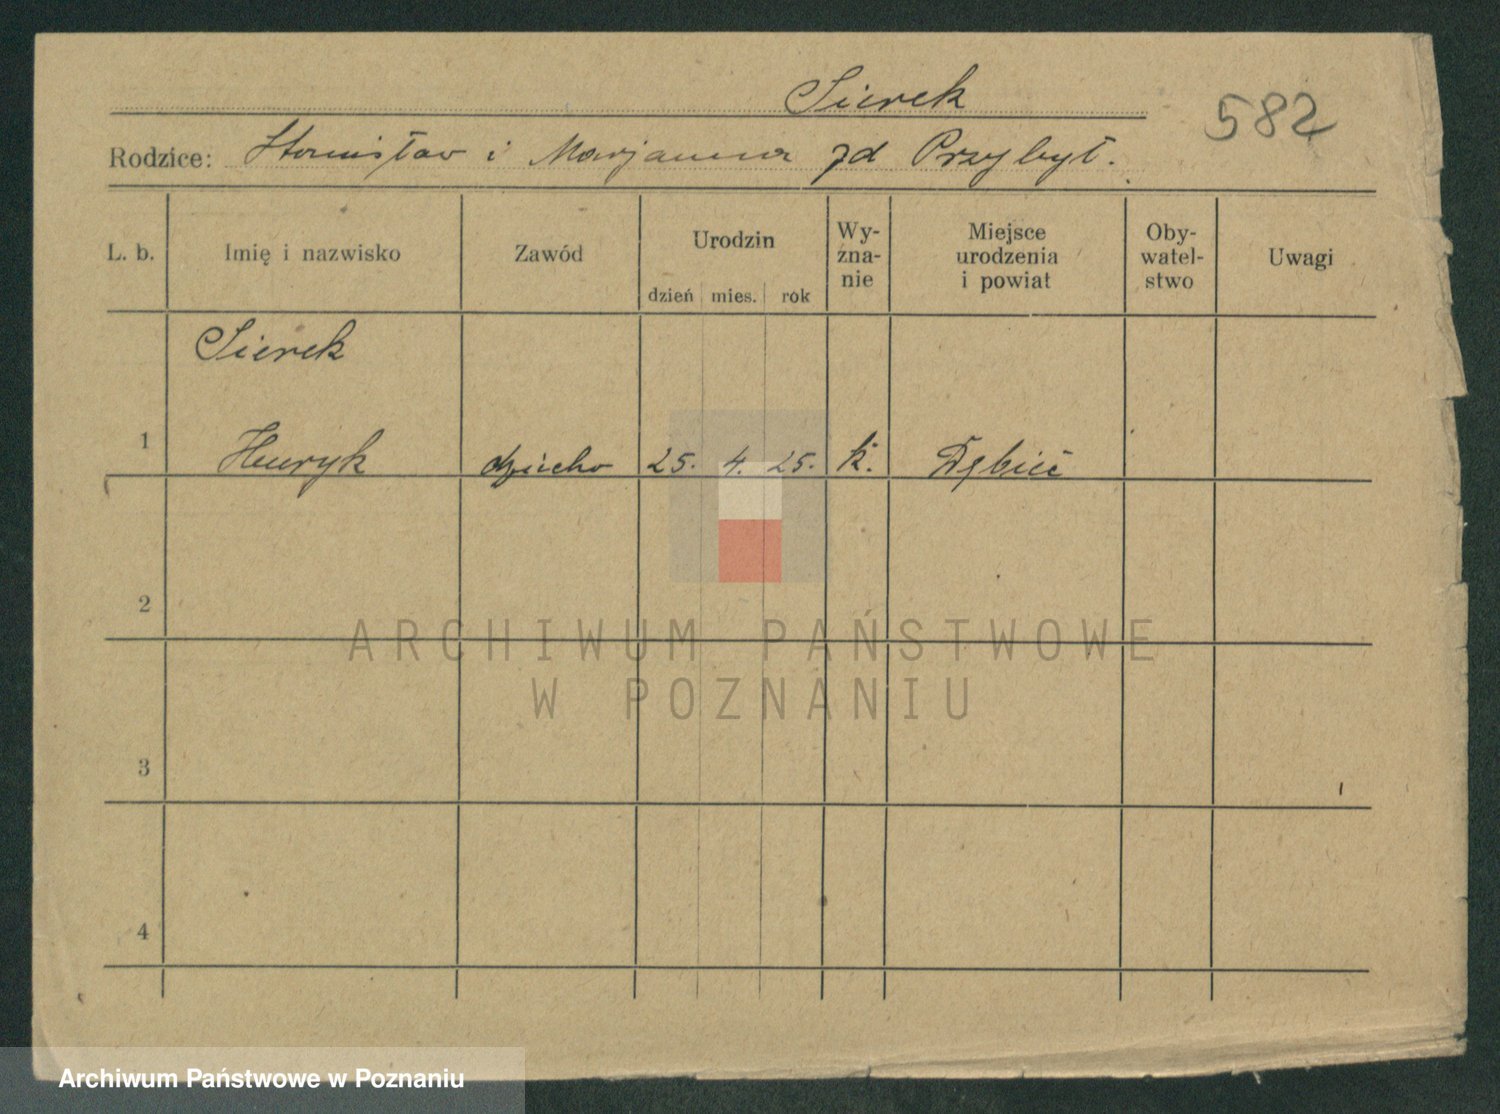 Sierek
582
Rodzice: Stanisław i Marjanna zd Przybył.
L. b.
Imię i nazwisko
Zawód
Urodzin
dzień mies. rok
Wy-
zna-
nie
Miejsce
urodzenia
i powiat
Oby-
watel-
stwo
Uwagi
Sierek
1 Henryk dziecko 25. 4. 25. k. Dębiec
2
3
4
ARCHIWUM PAŃSTWOWE
W POZNANIU
Archiwum Państwowe w Poznaniu